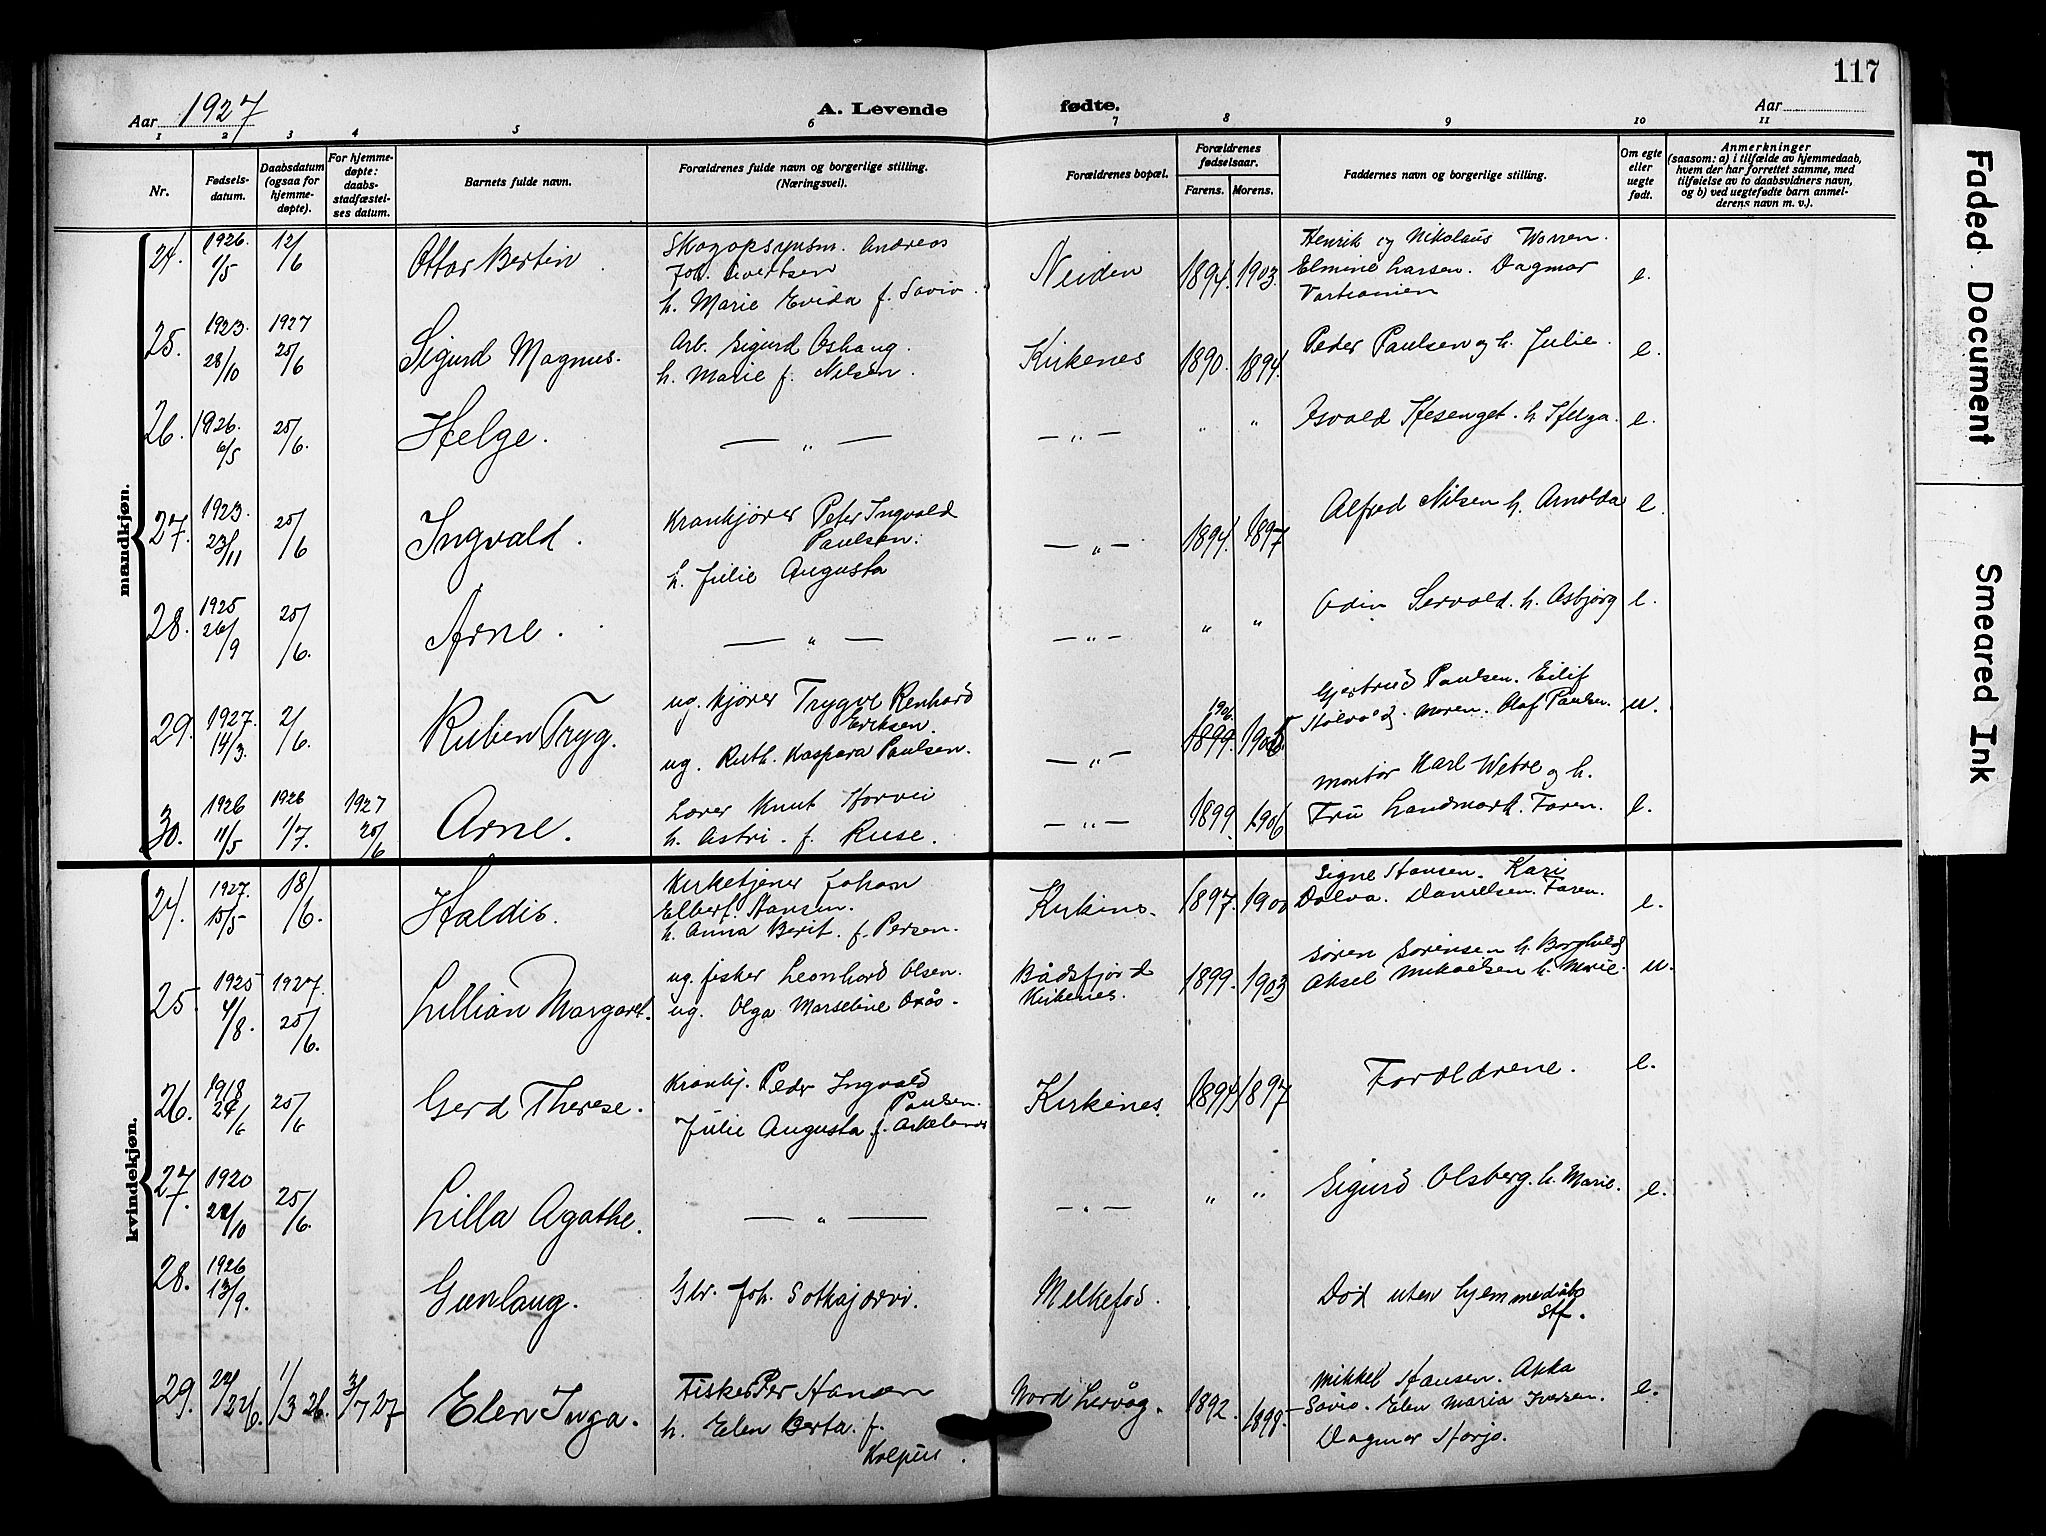 117
Aar 1927
A. Levende
fødte.
Aar
1 2 3 4 5 6 7 8 9 10 11
Nr.
Fødsels-
datum.
Daabsdatum
(ogsaa for
hjemme-
døpte).
For hjemme-
døpte:
daabs-
stadfæstel-
ses datum.
Barnets fulde navn.
Forældrenes fulde navn og borgerlige stilling.
(Næringsvei).
Forældrenes bopæl.
Forældrenes
fødselsaar.
Farens. Morens.
Faddernes navn og borgerlige stilling.
Om egte
eller
uegte
født.
Anmerkninger
(saasom: a) i tilfælde av hjemmedaab,
hvem der har forrettet samme, med
tilføielse av to daabsvidners navn,
og b) ved uegtefødte barn anmel-
derens navn m. v.).
mandkjøn.
24. 1926. 1/5 12/6 Ottar Bertin
Skogopsynsm. Andreas
Joh. Evertsen
h. Marie Evida f. Savio.
Neiden 1894. 1903.
Henrik og Nikolaus
Elmine Larsen. Dagmar
e.
25. 1923. 28/10 1927 25/6 Sigurd Magnus.
Arb. Sigurd
h. Marie f. Nilsen.
Kirkenes 1890. 1894.
Peder Paulsen og h. Julie. e.
26. 1926. 6/5 25/6. Helge.
— „ — — „ — „ „
h. Helga. e.
27. 1923. 23/11 25/6 Ingvald.
Krankjører Peter Ingvald
Paulsen.
h. Julie Augusta
— „ — 1894. 1897
Alfred Nilsen h. Arnolda e.
28. 1925 26/9 25/6. Arne.
— „ — — „ — „ „
Odin h. Asbjørg e.
29. 1927. 14/3. 2/6. Ruben Tryg.
ug. kjører Trygve Renhard
Eriksen.
ug. Ruth. Kaspara Paulsen.
— „ — 1906. 1899.
Gjertrud Paulsen. Eilif
moren. Olaf Paulsen. u.
30. 1926 11/5 1926 1/7. 1927 25/6 Arne.
Lærer Knut Horvei
h. Astri. f. Ruse.
— „ — 1899. 1906
Montør Karl Wetre og h.
Fru Landmark. Faren. e.
kvindekjøn.
24. 1927. 15/5 18/6. Haldis.
Kirketjener Johan
Elbert. Hansen.
h. Anna Berit. f. Persen.
Kirkenes. 1897. 1900
Signe Hansen. Kari
Dalva. Danielsen. Faren. e.
25. 1925 4/8. 1927. 25/6. Lillian Margaret.
ug. fisker Leonhard Olsen.
ug. Olga Marseline
Bådsfjord
Kirkenes.
1899. 1903
Søren Sørensen h. Borghild
Aksel Mikaelsen h. Marie. u.
26. 1918 24/6 25/6 Gerd Therese.
Krankj. Peder Ingvald
Paulsen.
Julie Augusta f.
Kirkenes. 1894 1897
Foreldrene. e.
27. 1920 22/10 25/6. Lilla Agathe.
— „ — — „ — „ „
Sigurd Olsberg. h. Marie. e.
28. 1926 13/9. Gunlaug.
Gbr. Joh. Sotkajærvi.
Melkefos.
Død uten hjemmedåbs
stf.
29. 22/12 26. 1/3 26. 3/7 27 Elen Inga.
Fisker Per Hansen
h. Elen Berta. f.
Kolpus.
Nord Lervåg. 1892. 1898.
Mikkel Hansen.
Savio. Elen Maria Iversen.
Dagmar
e.
Faded Document
Smeared Ink